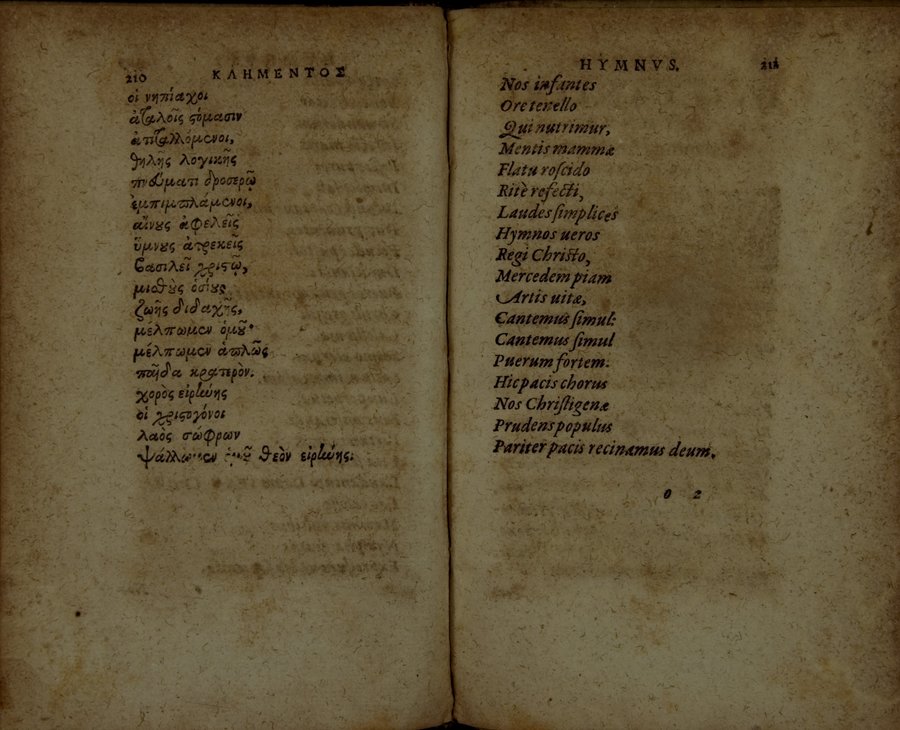 210 ΚΛΗΜΕΝΤΟΣ
οἱ νηπίαχοι
ἀταλοῖς στόμασιν
ἀτιταλλόμενοι,
θηλῆς λογικῆς
πνεύματι δροσερῷ
ἐμπιμπλάμενοι,
αἴνους ἀφελεῖς
ὕμνους ἀτρεκεῖς
βασιλεῖ χριστῷ,
μισθοὺς ὁσίους
ζωῆς διδαχῆς,
μέλπωμεν ὁμοῦ·
μέλπωμεν ἁπλῶς
παῖδα κρατερὸν.
χορὸς εἰρήνης
οἱ χριστογόνοι
λαὸς σώφρων
ψάλλωμεν ὁμοῦ θεὸν εἰρήνης.
HYMNVS. 211
Nos infantes
Ore tenello
Qui nutrimur,
Mentis mammæ
Flatu roſcido
Ritè refecti,
Laudes ſimplices
Hymnos ueros
Regi Chriſto,
Mercedem piam
Artis uitæ,
Cantemus ſimul:
Cantemus ſimul
Puerum fortem.
Hic pacis chorus
Nos Chriſtigenæ
Prudens populus
Pariter pacis recinamus deum.
o 2